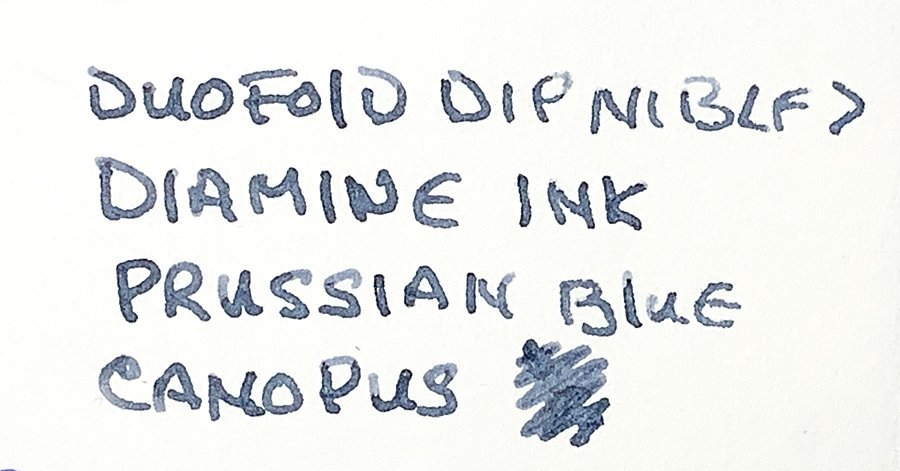 DUOFOLD DIP NIBLF >
DIAMINE INK
PRUSSIAN BLUE
CANOPUS